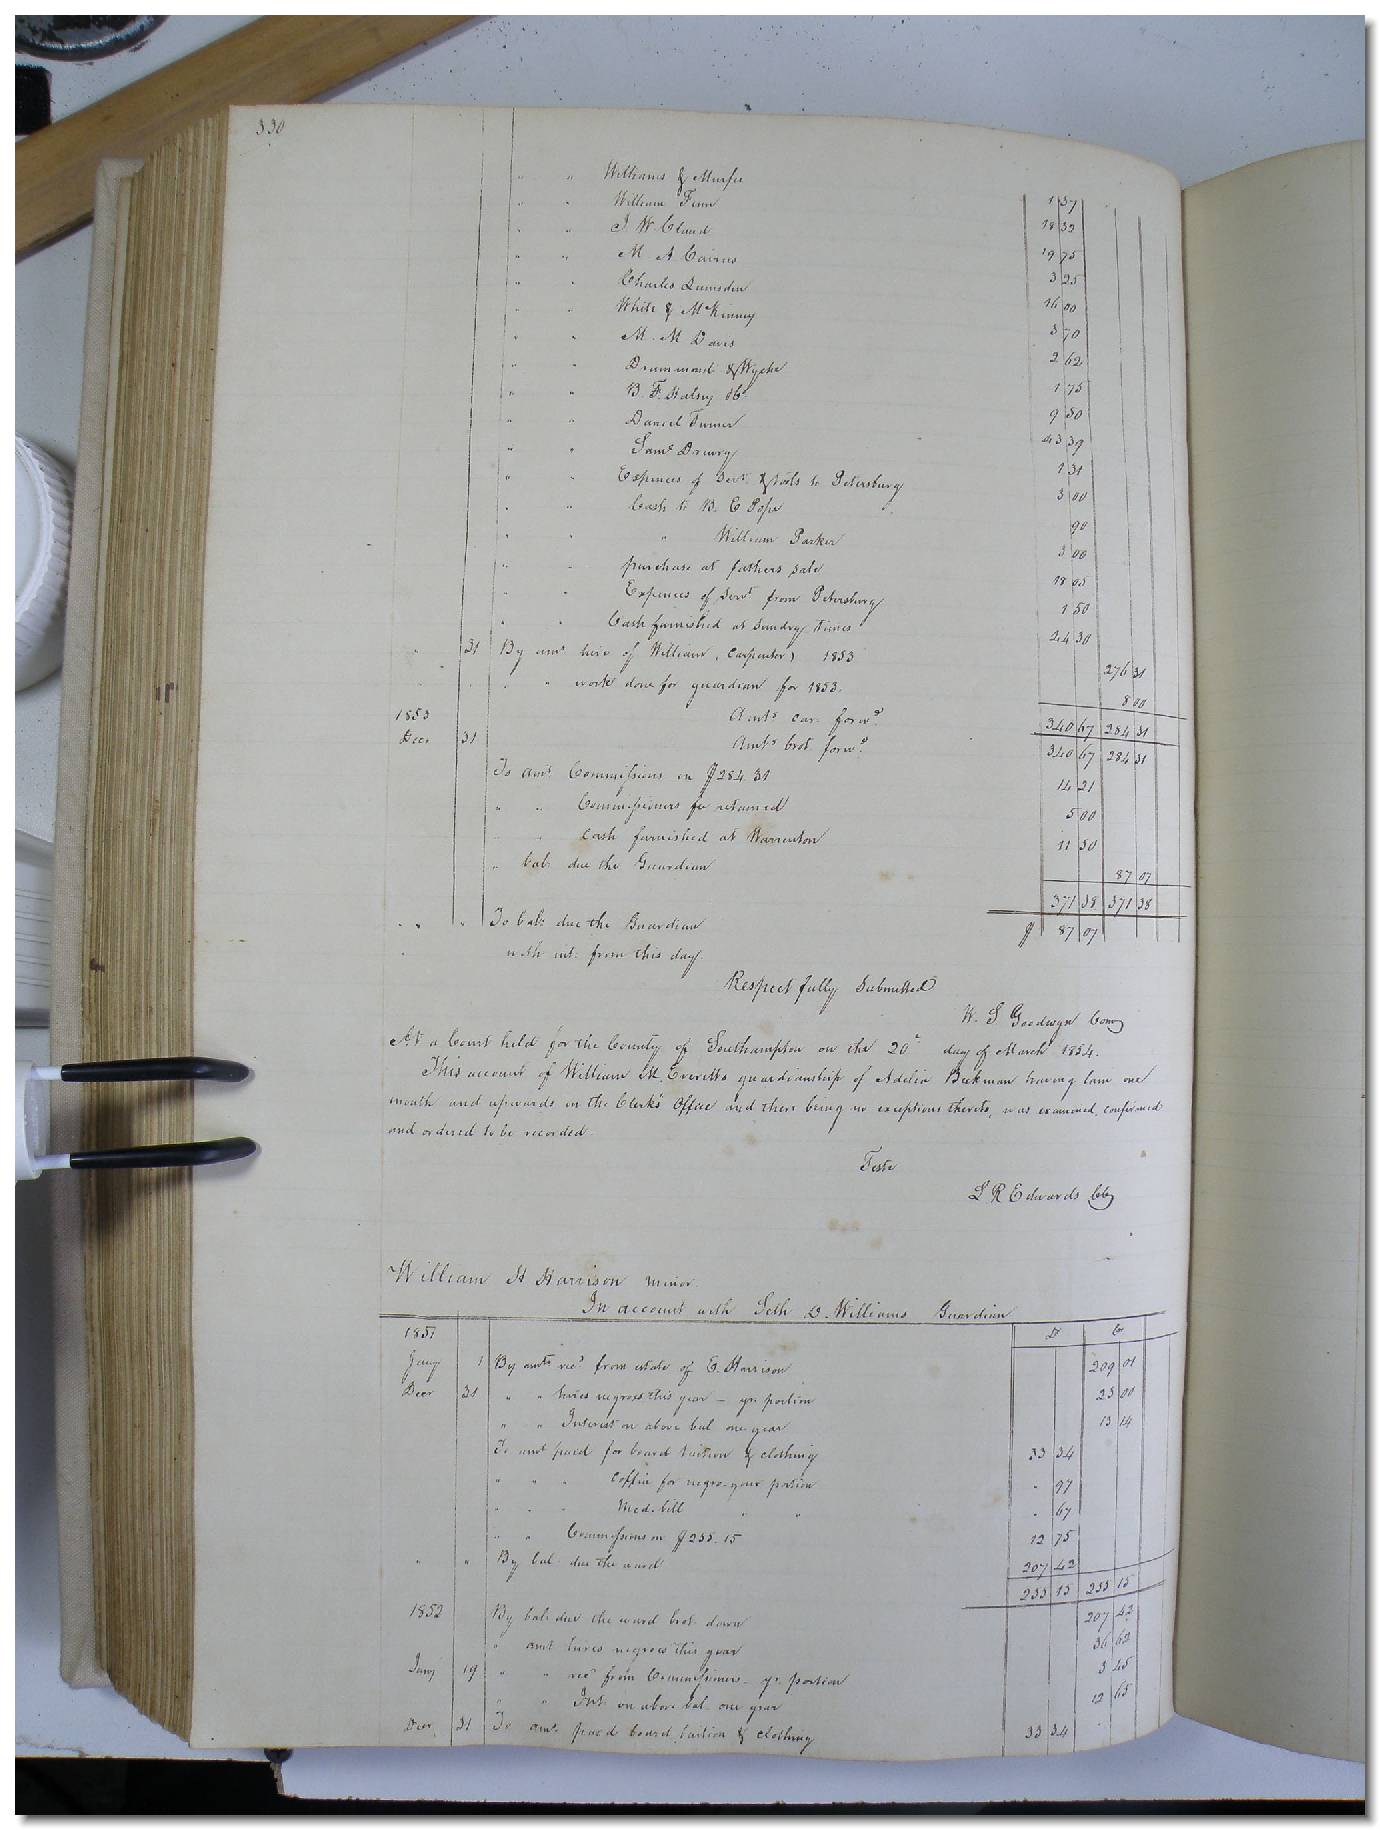 330
" " Williams & Murfee 1 37
" " William Fenn 18 39
" " J. W. Claud 19 75
" " M. A. Cairns 3 25
" " Charles Lumsden 16 00
" " White & McKinney 3 70
" " M. M. Davis 2 62
" " Drummond & Wyche 1 75
" " B. F. Halsey 9 50
" " Daniel Turner 43 39
" " Saml Drewry 1 31
" " Expences of Servt & tools to Petersburg 3 00
" " Cash to B. E Pope 90
" " " William Parker 3 00
" " purchase at fathers sale 18 05
" " Expences of Servt from Petersburg 1 50
" " Cash furnished at Sundry times 24 30
" 31 By amt hire of William (Carpenter) 1853 276 31
" " " work done for guardian for 1853. 8 00
1853 Amts car. forwd 340 67 284 31
Decr 31 Amts brot forwd 340 67 284 31
To amt Commissions on $284.31 14 21
" " Commissioners fee retained 5 00
" " Cash furnished at Warrenton 11 50
" bal: due the Guardian 87 07
371 38 371 38
" " " To bal: due the Guardian $ 87 07
" with int. from this day.
Respectfully Submitted
W. S Goodwyn Comr
At a Court held for the County of Southampton on the 20th day of March 1854.
This account of William M. Everetts guardianship of Adelia Beekman having lain one
month and upwards in the Clerk's Office and there being no exceptions thereto, was examined, confirmed
and ordered to be recorded.
Teste
L R Edwards Clk
William H Harrison minor.
In account with Seth D. Williams Guardian
1851 Dr Cr
Jany 1 By amts recd from estate of E. Harrison 209 01
Decr 31 " " hires negroes this year - yr. portion 23 00
" " Interest on above bal. one year 13 14
To amt paid for board tuition & clothing 33 34
" " " Coffin for negro - your portion " 97
" " " Med. bill " " " 67
" " Commissions on $255.15 12 75
" " By bal: due the ward 207 42
255 15 255 15
1852 By bal: due the ward brot. down 207 42
" amt hires negroes this year 36 62
Jany 19 " " recd from Commissioners - yr. portion 3 45
" " Int. on above bal. one year 12 65
Decr. 31 To amt. paid board, tuition & clothing 33 34